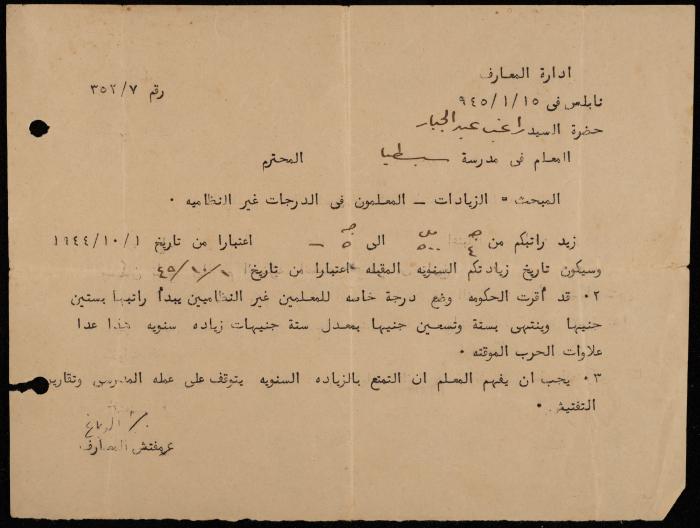 ادارة المعارف
رقم ٣٥٢/٧
نابلس فى ١٥/ ١/ ٩٤٥
حضرة السيد راغب عبد الجبار
المعلم فى مدرسة سبسطيا المحترم
المبحث = الزيادات _ المعلمون فى الدرجات غير النظاميه ٠
زيد راتبكم من ٤ ٥٠٠ الى ٥ _ اعتبارا من تاريخ ١/ ١٠/ ١٩٤٤
وسيكون تاريخ زيادتكم السنويه المقبله اعتبارا من تاريخ ٤٥/١٠/١
٢٠ قد أقرت الحكومه وضع درجة خاصه للمعلمين غير النظاميين يبدأ راتبها بستين
جنيها وينتهى بستة وتسعين جنيها بمعدل ستة جنيهات زياده سنويه هذا عدا
علاوات الحرب الموقته ٠
٣٠ يجب ان يفهم المعلم ان التمتع بالزياده السنويه يتوقف على عمله المدرسى وتقارير
التفتيش ٠
مفتش المعارف